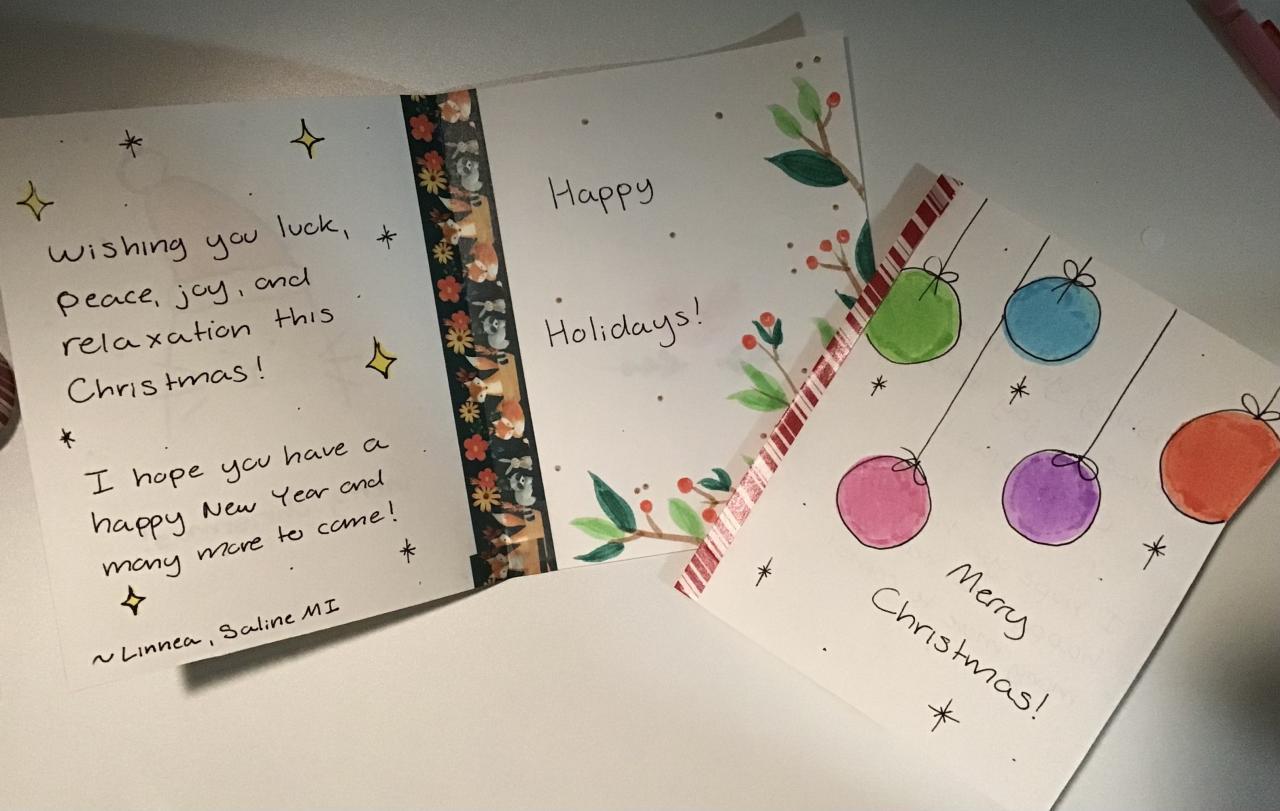 Wishing you luck,
peace, joy, and
relaxation this
Christmas!
I hope you have a
happy New Year and
many more to come!
~Linnea, Saline MI
Happy
Holidays!
Merry
Christmas!